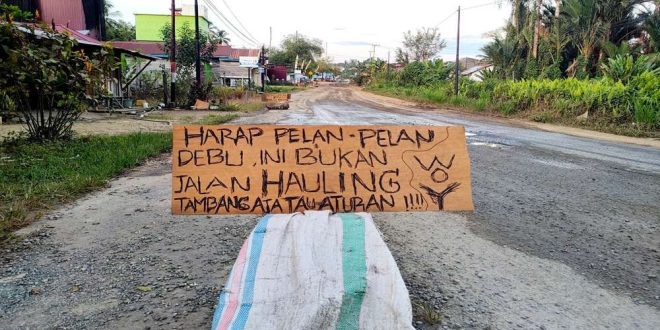 HARAP PELAN-PELAN
DEBU, INI BUKAN
JALAN HAULING
TAMBANG ATA TAU ATURAN !!!!
WOY